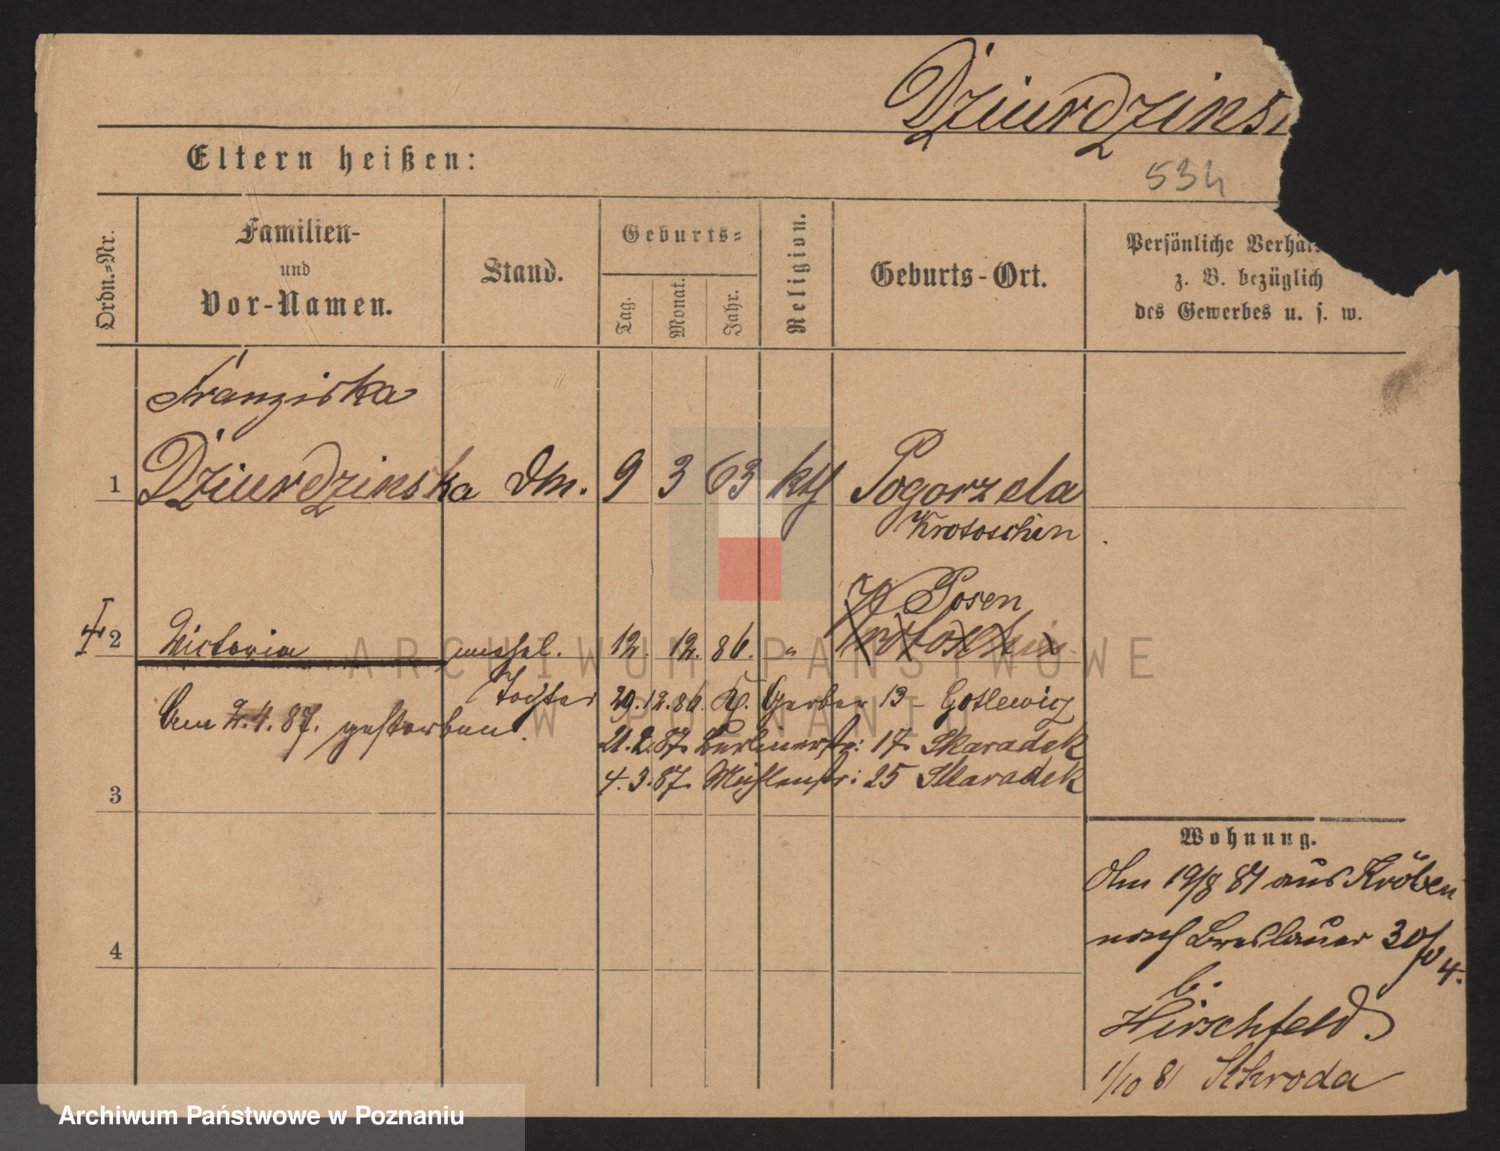 Dziurdzins
Eltern heißen:
534
Ordn.=Nr.
Familien-
und
Vor-Namen.
Stand.
Geburts=
Tag.
Monat.
Jahr.
Religion.
Geburts-Ort.
Persönliche Verhäl
z. B. bezüglich
des Gewerbes u. s. w.
Franziska
1 Dziurdzinska Dm. 9 3 63 kth Pogorzela
Krotoschin
Posen
2 Victoria unehel. 12. 12. 86. " Krotoschin
Tochter 29.12.86. Gerber 13 - Goslewicz
Am 2.4.87. gestorben.
21.2.87. Berlinerstr: 17. Skaradek
4.3.87. Mühlenstr: 25 Skaradek
3
Wohnung.
Am 19/8 81 aus Kröben
nach Breslauer 30/
4
b.
Hirschfeld.
1/10 81 Schroda
ARCHIWUM PAŃSTWOWE
W POZNANIU
Archiwum Państwowe w Poznaniu